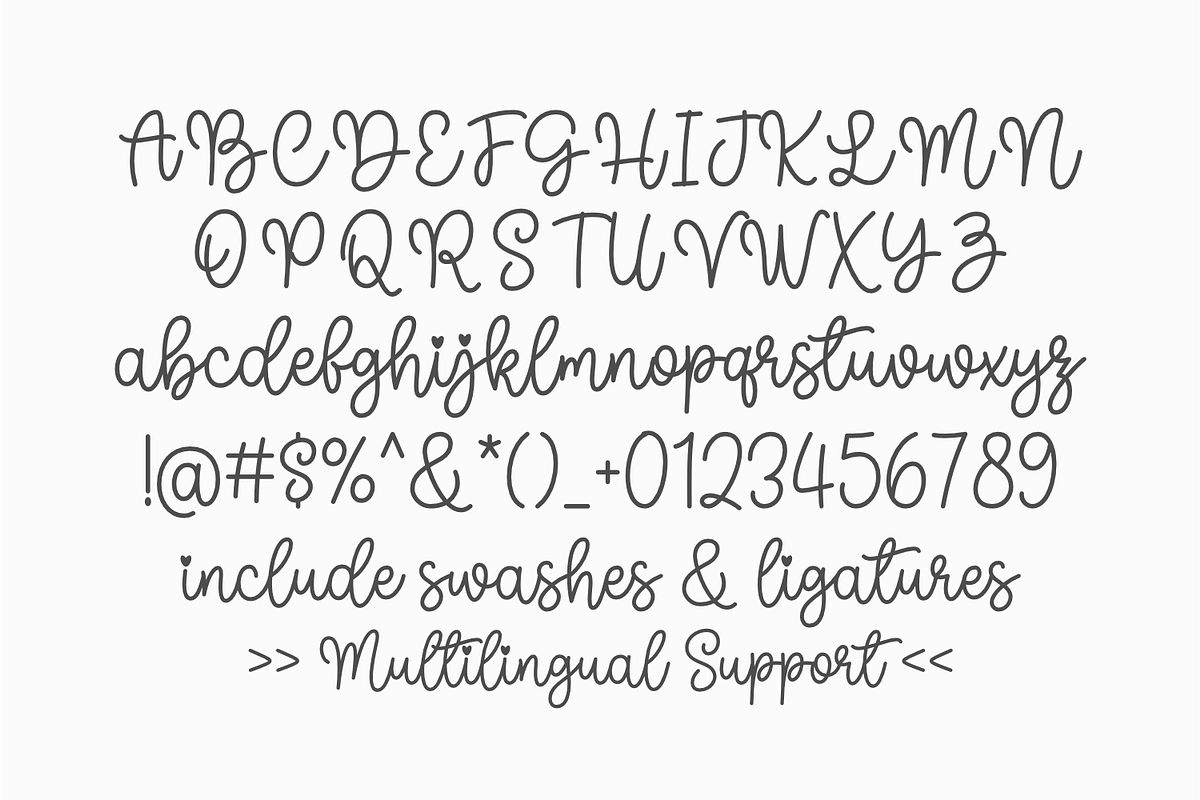 ABCDEFGHIJKLMN
OPQRSTUVWXYZ
abcdefghijklmnopqrstuvwxyz
!@#$%^&*()_+0123456789
include swashes & ligatures
>> Multilingual Support <<